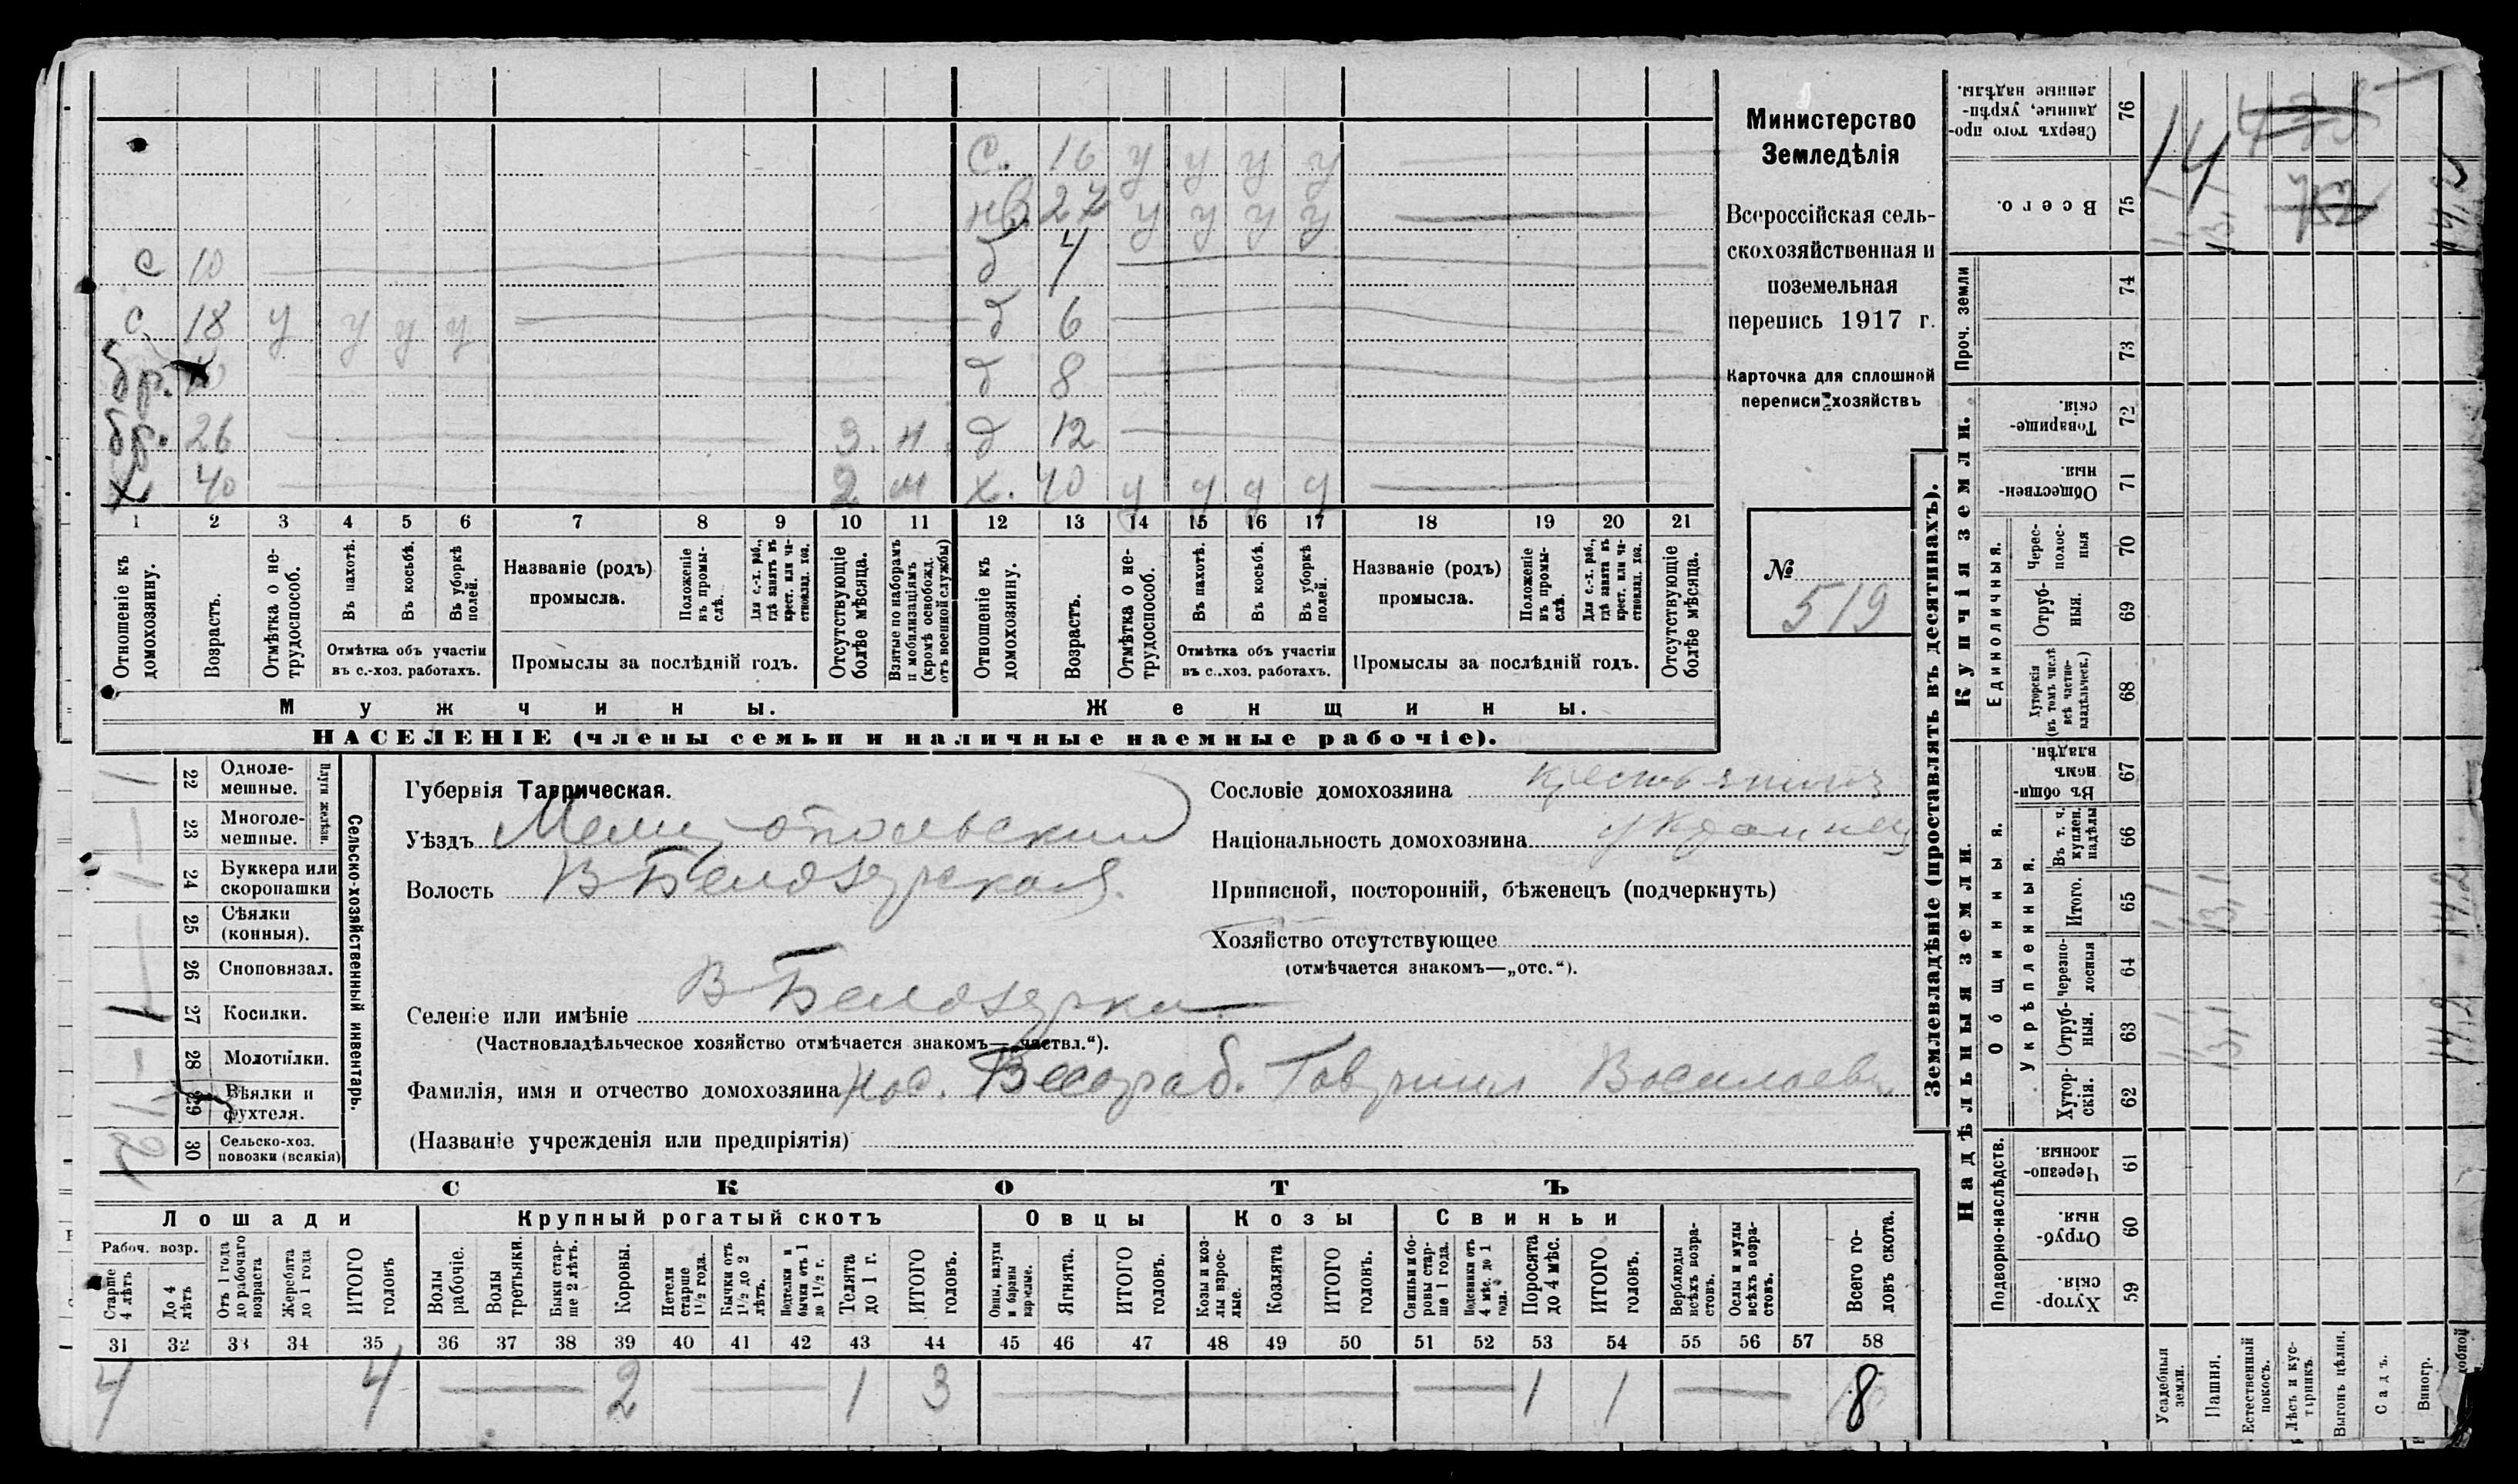 С. 16 у у у у
нв. 27 у у у у
с 10
д 4
с 18 у у у у
д 6
бр.
д 8
бр. 26 З. н.
д 12
х 40 2 м
х. 40 у у у у
1 2 3 4 5 6 7 8 9 10 11 12 13 14 15 16 17 18 19 20 21
Отношеніе къ домохозяину.
Возрастъ.
Отмѣтка о нетрудоспособ.
Въ пахотѣ.
Въ косьбѣ.
Въ уборкѣ полей.
Отмѣтка объ участіи
въ с.-хоз. работахъ.
Названіе (родъ)
промысла.
Положеніе въ промыслѣ.
Для с.-х. раб., гдѣ занятъ въ крест. или частновлад. хоз.
Промыслы за послѣдній годъ.
Отсутствующіе болѣе мѣсяца.
Взятые по наборамъ и мобилизаціямъ (кромѣ освобожд. отъ военной службы)
Отношеніе къ домохозяину.
Возрастъ.
Отмѣтка о нетрудоспособ.
Въ пахотѣ.
Въ косьбѣ.
Въ уборкѣ полей.
Отмѣтка объ участіи
въ с.-хоз. работахъ.
Названіе (родъ)
промысла.
Положеніе въ промыслѣ.
Для с.-х. раб., гдѣ занята въ крест. или частновлад. хоз.
Промыслы за послѣдній годъ.
Отсутствующіе болѣе мѣсяца.
Мужчины.
Женщины.
НАСЕЛЕНІЕ (члены семьи и наличные наемные рабочіе).
Министерство
Земледѣлія
Всероссійская сель-
скохозяйственная и
поземельная
перепись 1917 г.
Карточка для сплошной
переписи хозяйствъ
№
519
22 Одноле-
мешные.
23 Многоле-
мешные.
Плуги желѣзн.
24 Буккера или
скоропашки
25 Сѣялки
(конныя).
26 Сноповязал.
27 Косилки.
28 Молотилки.
29 Вѣялки и
фухтеля.
30 Сельско-хоз.
повозки (всякія)
Сельско-хозяйственный инвентарь.
Губернія Таврическая.
Уѣздъ Мелитопольский
Волость В Белозерская.
Селеніе или имѣніе В Белозерка
(Частновладѣльческое хозяйство отмѣчается знакомъ—„частвл.“).
Фамилія, имя и отчество домохозяина Гавриил Василаев
(Названіе учрежденія или предпріятія)
Сословіе домохозяина крестьянин
Національность домохозяина украинец
Приписной, посторонній, бѣженецъ (подчеркнуть)
Хозяйство отсутствующее
(отмѣчается знакомъ—„отс.“).
СКОТЪ
Лошади
Крупный рогатый скотъ
Овцы
Козы
Свиньи
Рабоч. возр.
Старше 4 лѣтъ
До 4 лѣтъ
Отъ 1 года до рабочаго возраста
Жеребята до 1 года
ИТОГО головъ
Волы рабочіе.
Волы третьяки.
Быки старше 2 лѣтъ.
Коровы.
Нетели старше 1½ года.
Бычки отъ 1½ до 2 лѣтъ.
Подтелки и бычки отъ 1 до 1½ г.
Телята до 1 г.
ИТОГО головъ.
Овцы, валухи и бараны взрослые.
Ягнята.
ИТОГО головъ.
Козы и козлы взрослые.
Козлята
ИТОГО головъ.
Свиньи и боровы старше 1 года.
Подсвинки отъ 4 мѣс. до 1 года.
Поросята до 4 мѣс.
ИТОГО головъ.
Верблюды всѣхъ возрастовъ.
Ослы и мулы всѣхъ возрастовъ.
Всего головъ скота.
31 32 33 34 35 36 37 38 39 40 41 42 43 44 45 46 47 48 49 50 51 52 53 54 55 56 57 58
4 4 2 1 3 1 1 8
Землевладѣніе (проставлять въ десятинахъ).
Купчія земли.
Надѣльныя земли.
Сверхъ того проданные, укрѣпленные надѣлы. 76
Всего. 75
Проч. земли
74
73
Товарищескія. 72
Общественныя. 71
Единоличныя.
Чересполосныя 70
Отрубныя. 69
Хуторскія (въ томъ числѣ всѣ частновладѣльческ.) 68
Общинныя.
Въ общинномъ владѣн. 67
Укрѣпленныя.
Въ т. ч. куплен. надѣлы 66
Итого. 65
Черезполосныя 64
Отрубныя. 63
Хуторскія. 62
Подворно-наслѣдств.
Черезполосныя. 61
Отрубныя. 60
Хуторскія. 59
Усадебныя земли.
Пашня.
Естественный покосъ.
Лѣсъ и кустарникъ.
Выгонъ цѣлин.
Садъ.
Виногр.
14